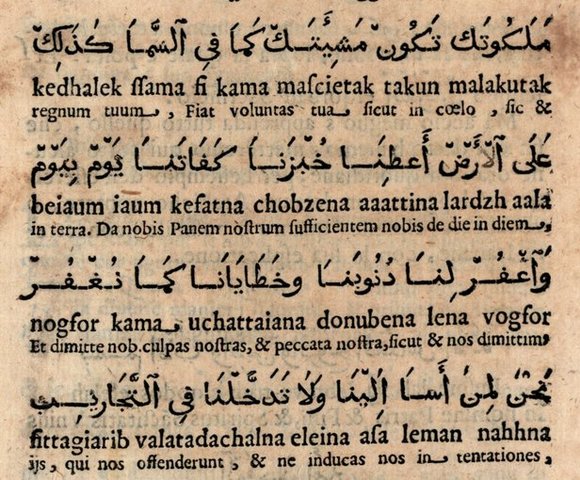 ملكوتك تكون مشيئتك كما في السما كذلك
kedhalek ſſama fi kama maſcietak takun malakutak
regnum tuum, Fiat voluntas tua ſicut in cœlo, ſic &
على الارض أعطنا خبزنا كفاتنا يوم بيوم
beiaum iaum kefatna chobzena aaattina lardzh aala
in terra. Da nobis Panem noſtrum ſufficientem nobis de die in diem,
واغفر لنا دنوبنا وخطايانا كما نغفر
nogfor kama uchattaiana donubena lena vogfor
Et dimitte nob.culpas noſtras, & peccata noſtra,ſicut & nos dimittim⁹
نحن لمن أسا الينا ولا تدخلنا في التجاريب
fittagiarib valatadachalna eleina aſa leman nahhna
ijs, qui nos offenderunt, & ne inducas nos in tentationes,